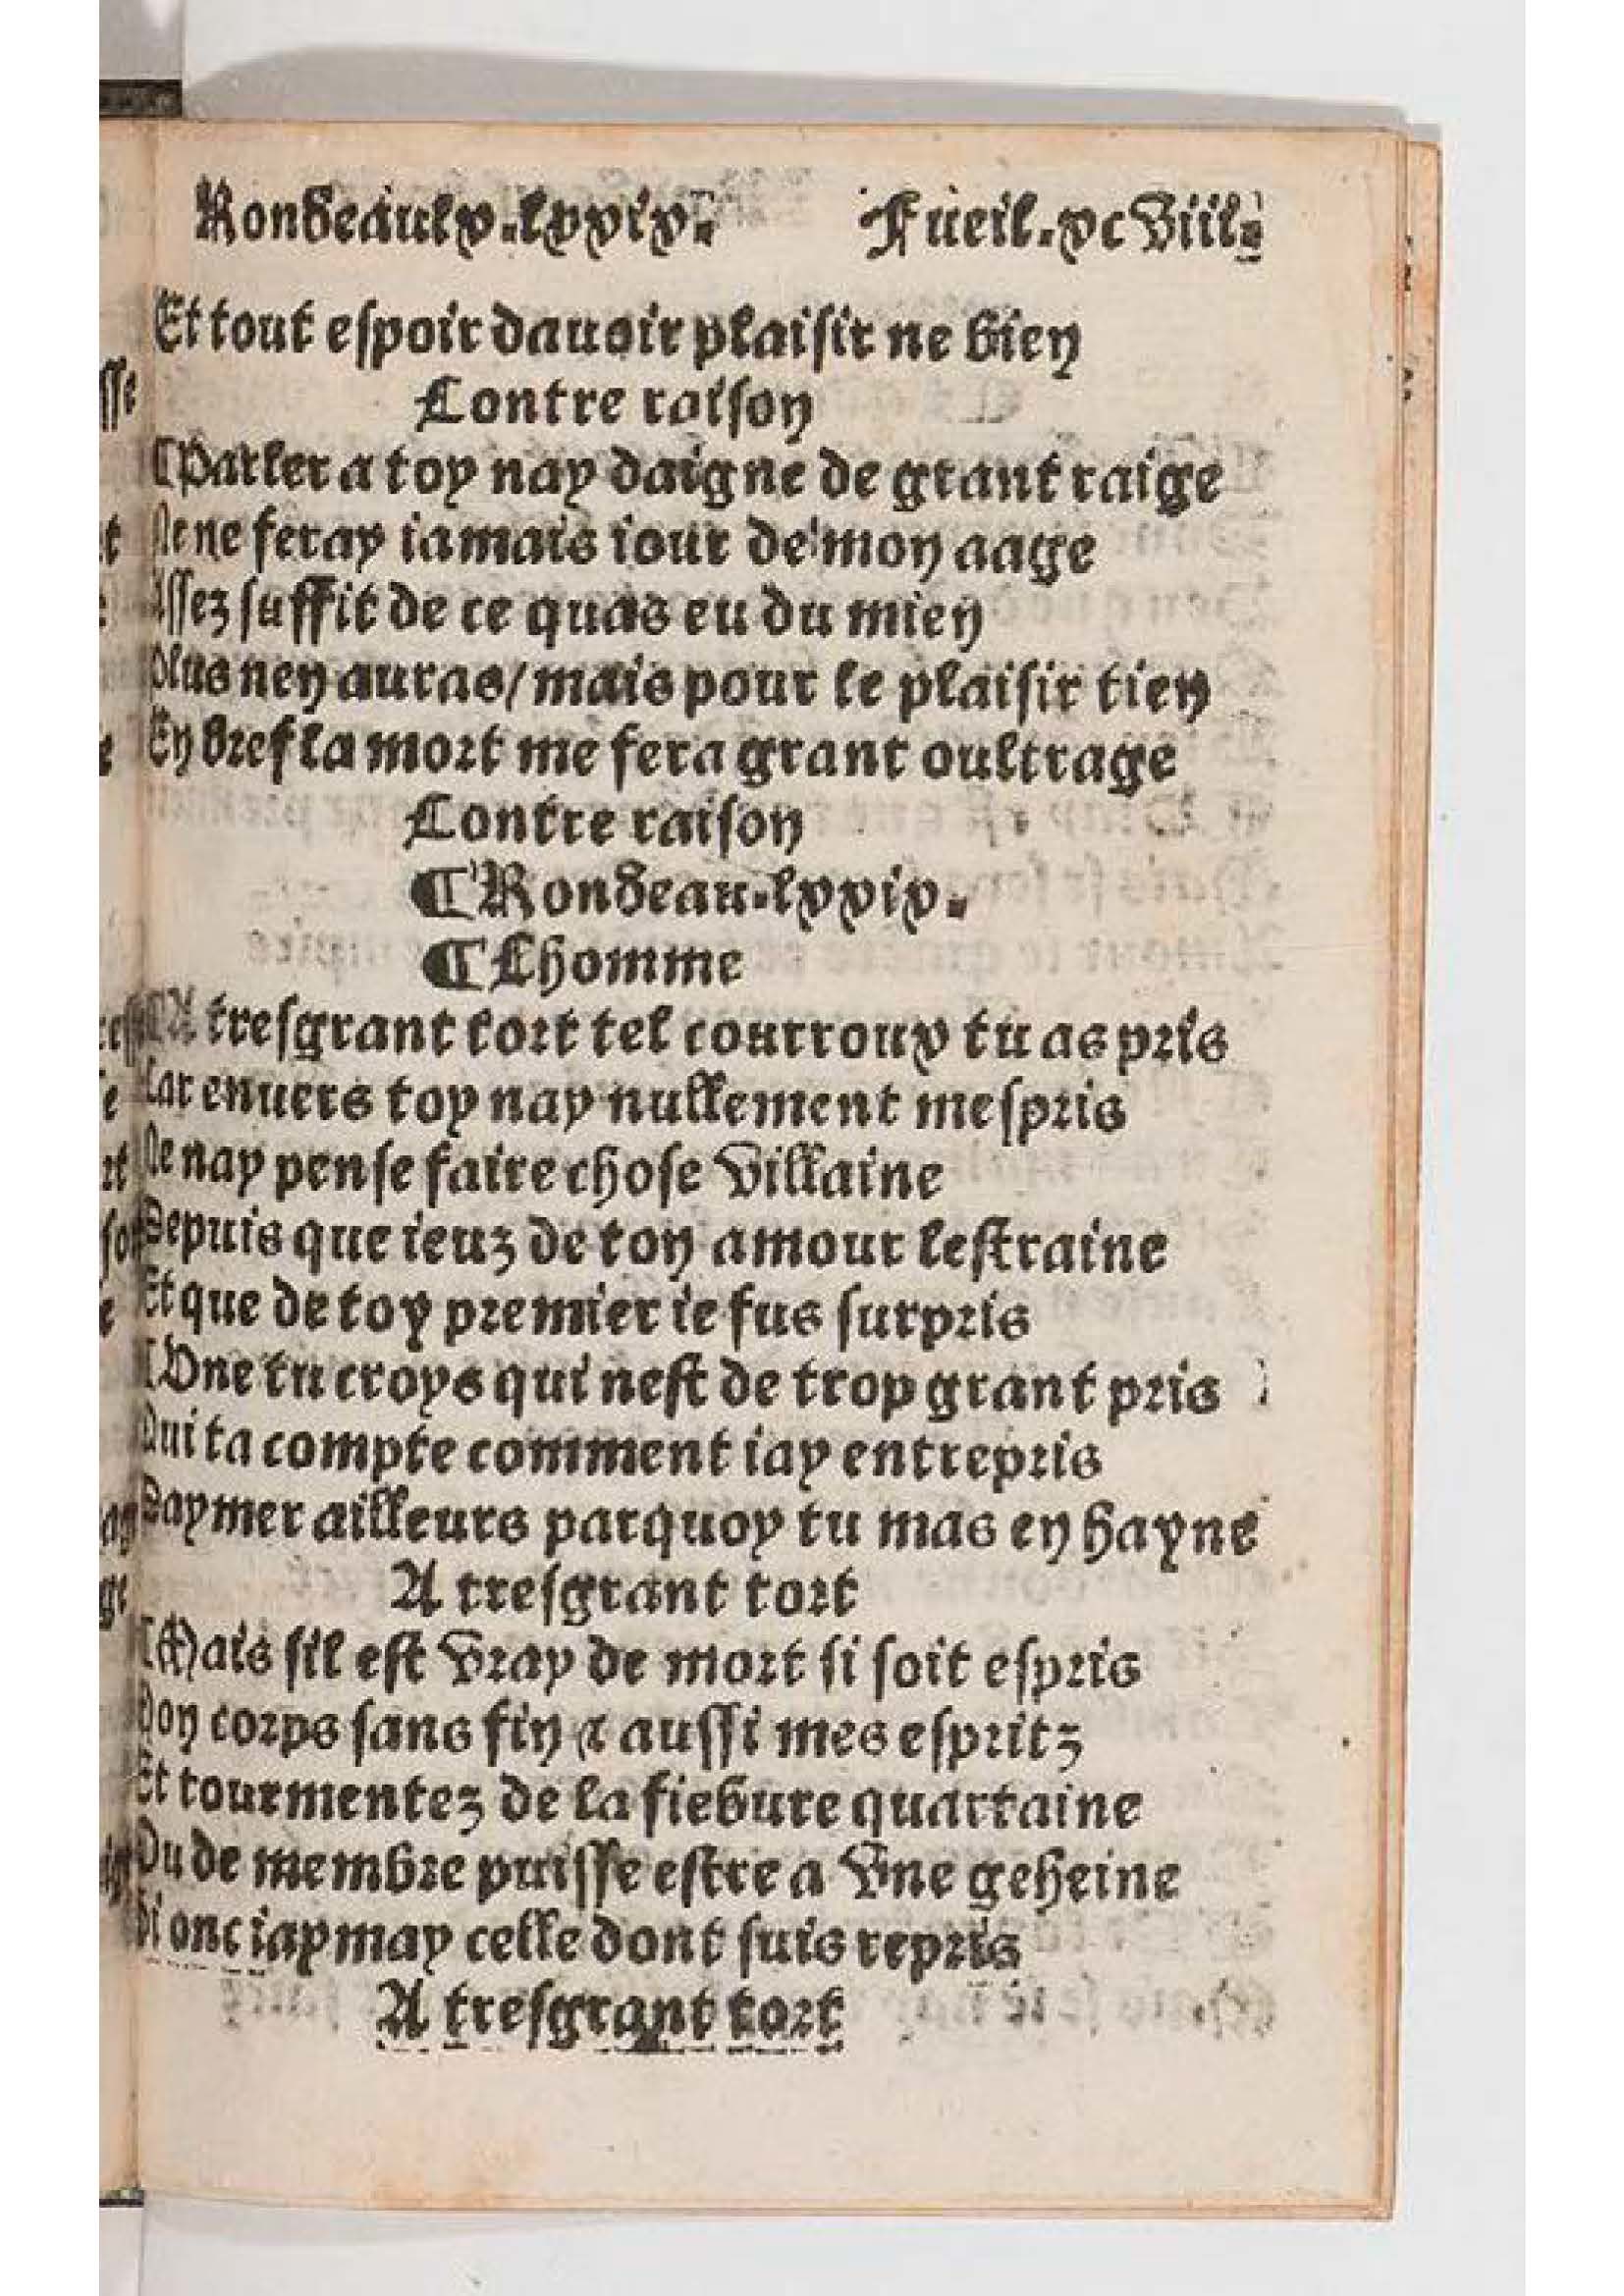 Rondeaulx.lxxix. Fueil.xcviii.
Et tout espoir dauoir plaisir ne bien
Contre raison
¶Parler a toy nay daigne de grant raige
Ne ne feray iamais iour de mon aage
Assez suffit de ce quas eu du mien
Plus nen auras/mais pour le plaisir tien
En bref la mort me fera grant oultrage
Contre raison
¶Rondeau.lxxix.
¶Lhomme
¶A tresgrant tort tel courroux tu as pris
Car enuers toy nay nullement mespris
Ne nay pense faire chose villaine
Depuis que ieuz de ton amour lestraine
Et que de toy premier ie fus surpris
¶Une tu croys qui nest de trop grant pris
Qui ta compte comment iay entrepris
Daymer ailleurs parquoy tu mas en hayne
A tresgrant tort
¶Mais sil est vray de mort si soit espris
Mon corps sans fin & aussi mes espritz
Et tourmentez de la fiebure quartaine
Ou de membre puisse estre a vne geheine
Si onc iaymay celle dont suis repris
A tresgrant tort